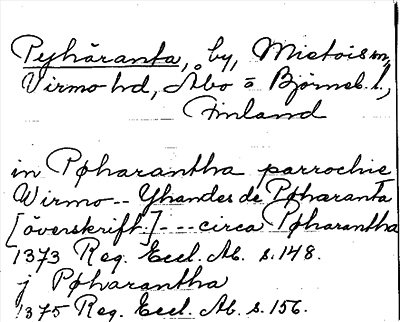 Pyhäranta, by, Mietois sn,
Virmo hd, Åbo o Björneb. l.,
Finland
in Pøharantha parrochie
Wirmo -- Yhandes de Pøharanta
[överskrift.] --- circa Pøharantha
1373 Reg. Eccl. Ab. s. 148.
j Pøharantha
1375 Reg. Eccl. Ab. s. 156.